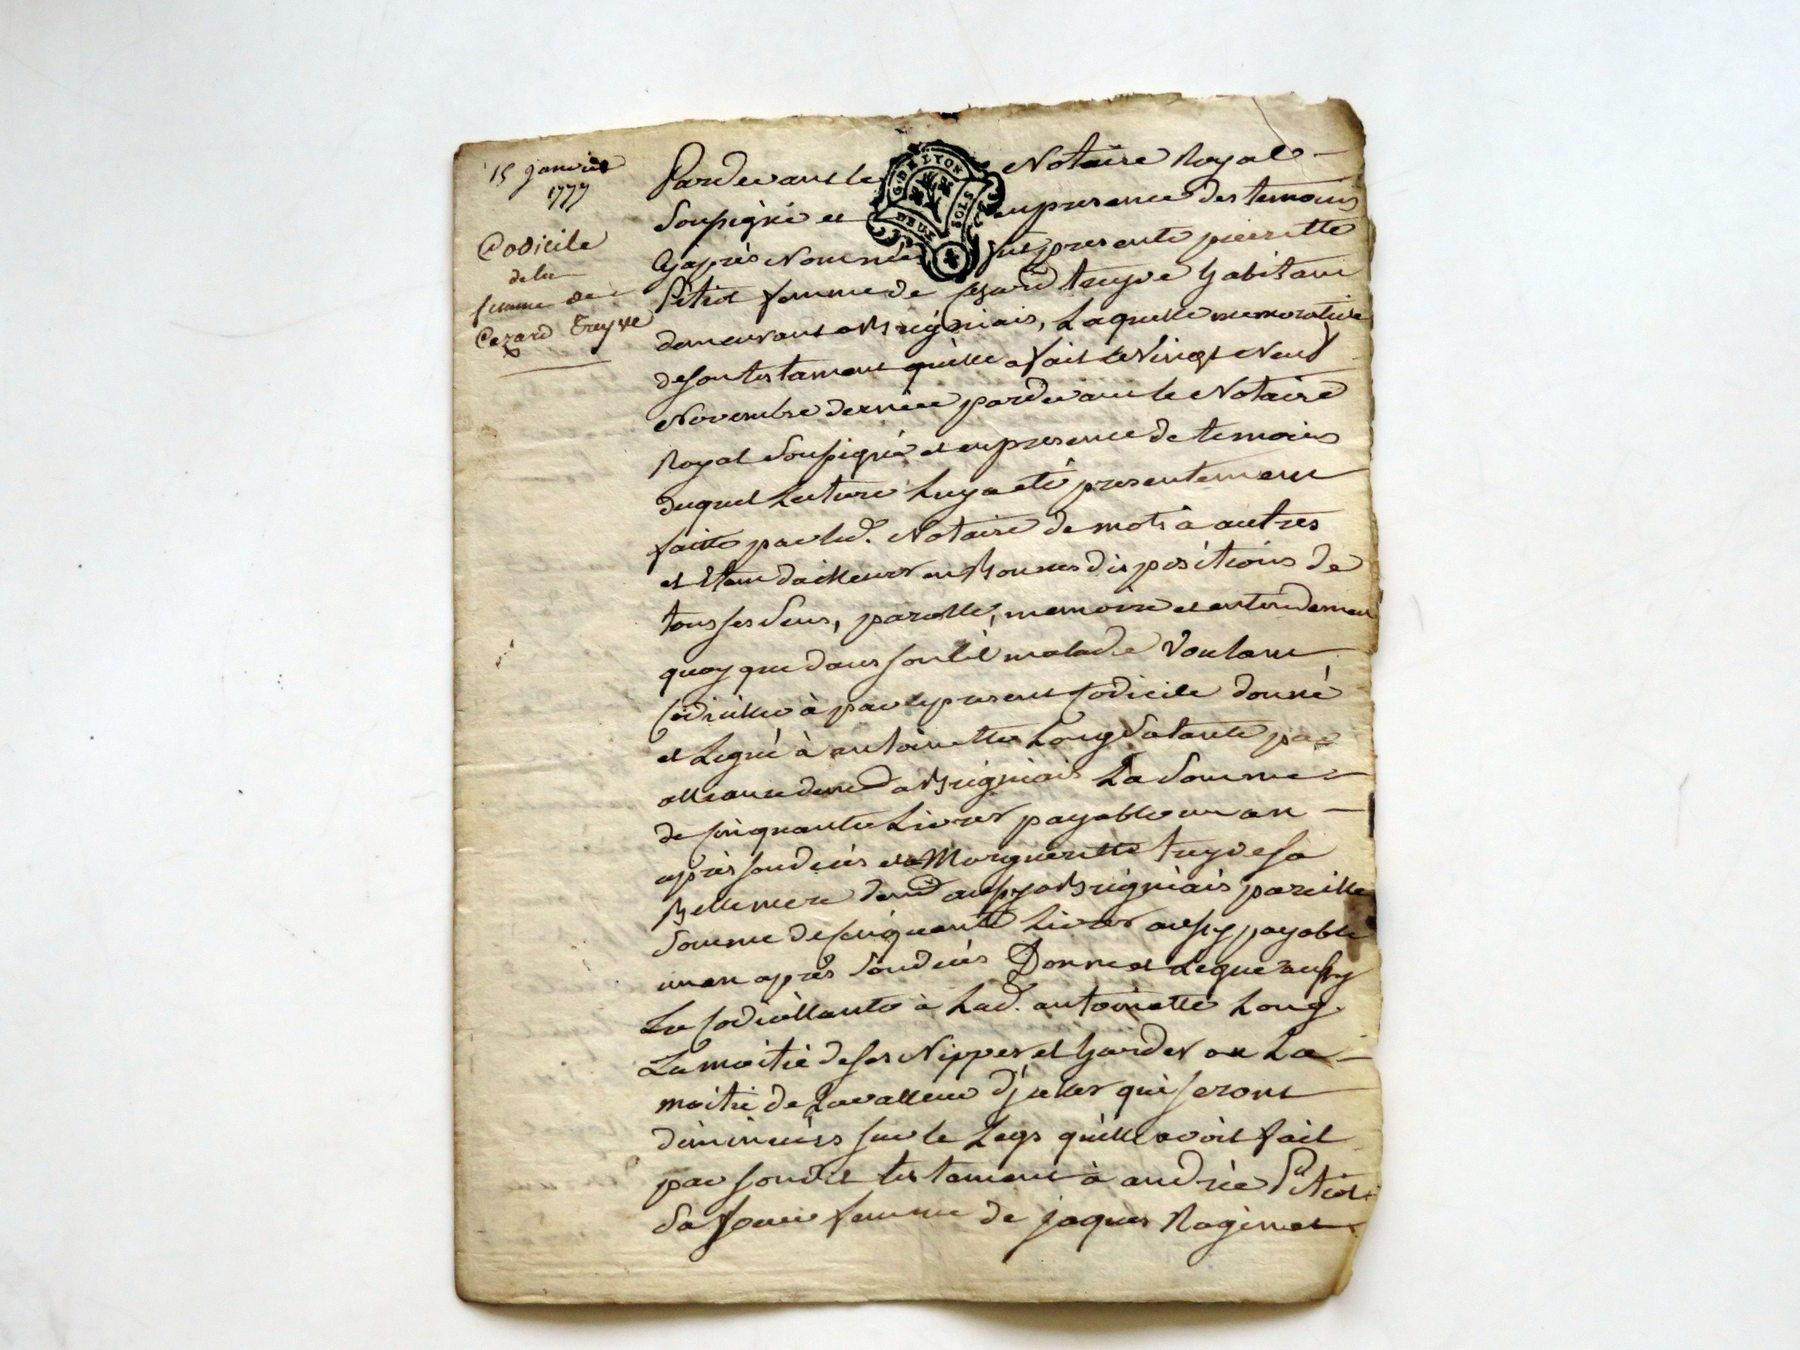 15 janvier
1777
Codicile
de la
femme de
Cezard Treyve
G. DE LYON
DEUX SOLS
Pardevant le Notaire Royal
Soussigné et en presence des temoins
cyaprès Nommés fut presente pierrette
Pitiot femme de Cezard treyve habitant
demeurant a Brigniais, Laquelle memorative
de son testament qu'elle a fait le Vingt Neuf
Novembre dernier pardevant le Notaire
Royal Soussigné et en presence de temoins
duquel Lecture Luy a eté presentement
faitte par led. Notaire de mots à autres
et Etant dailleurs en Bonnes dispositions de
tous ses Sens, parolle, memoire et entendemen
quoy que dans son lit malade Voulant
Codiciller à par le present Codicile donné
et Legué à antoinette Long Sa tante par
alleance dem.t a Brigniais La Somme
de Cinquante Livres payable un an
après son deces et a Marguerite treyve sa
Belle mere dem.t aussy a Brigniais pareille
Somme de Cinquante Livres aussy payable
un an après Son deces Donne et Legue aussy
La Codicillante à Lad. antoinette Long
La moitié de ses Nippes et hardes ou La
moitié de La valleur d'jcelles qui seront
diminuées sur le Legs qu'elle avoit fait
par sond.t testament à andrée Pitiot
Sa soeur femme de jaques Ragimet